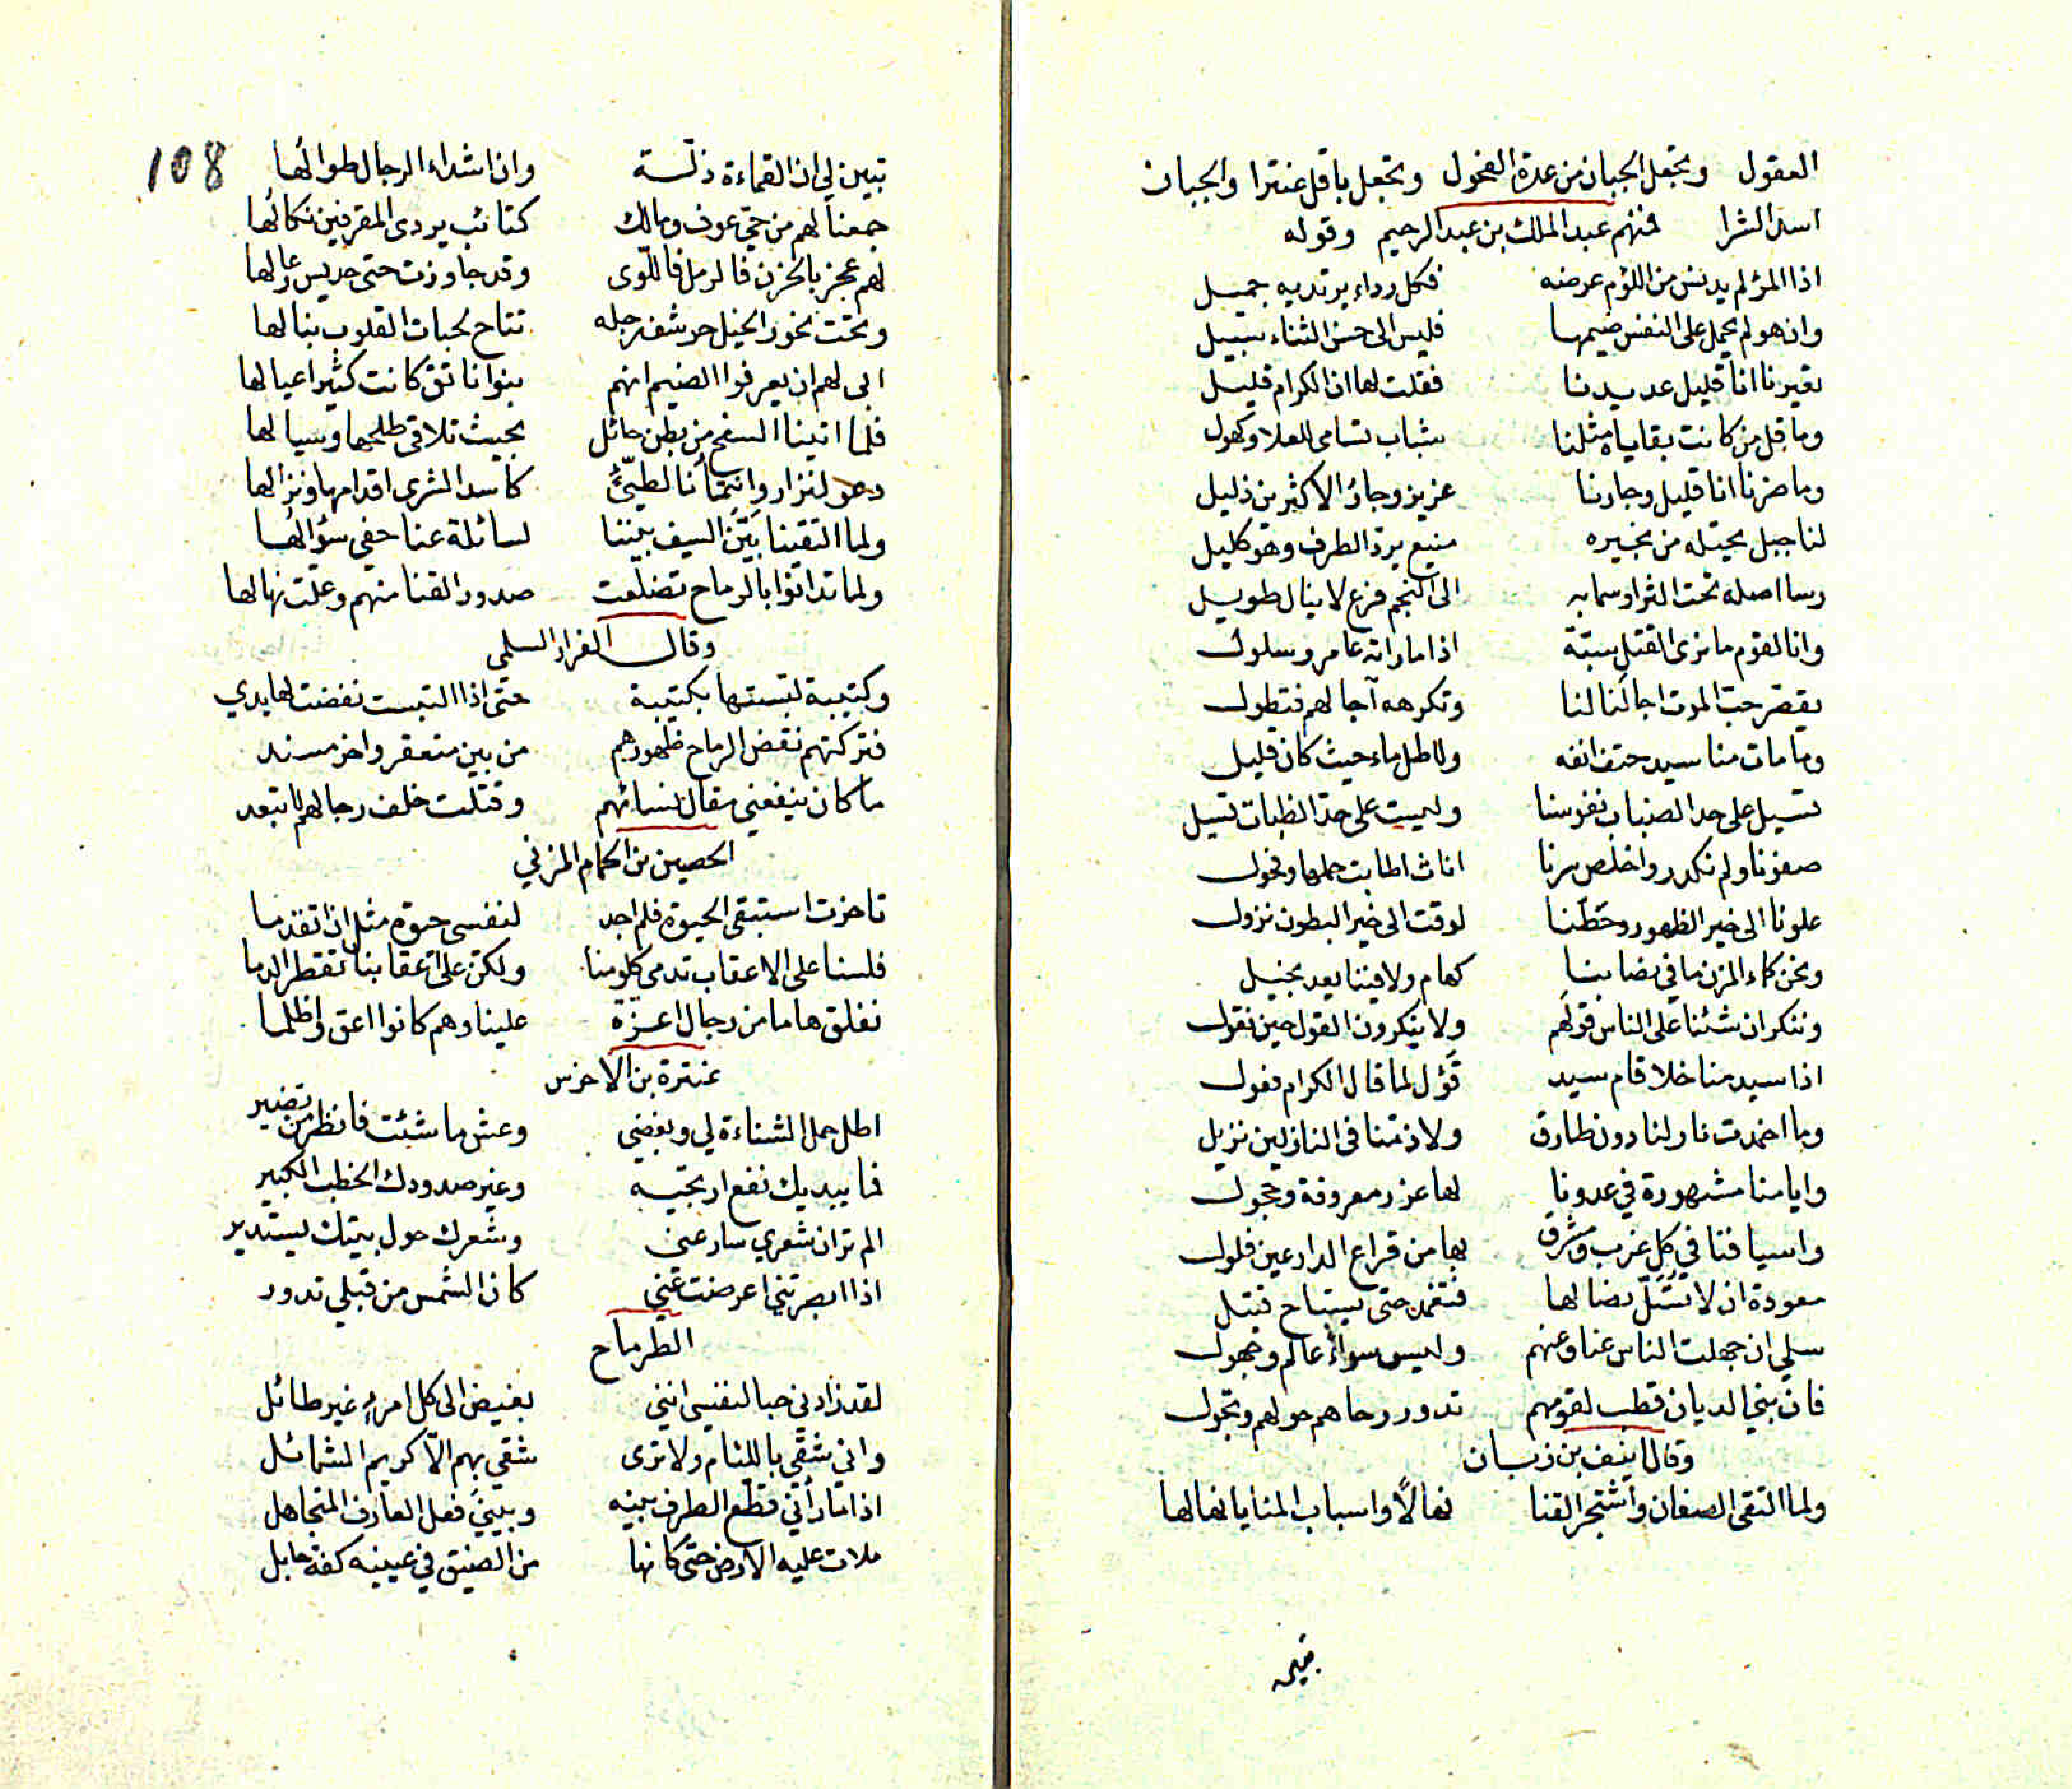 العقول وتجعل الجبان من عدة الفحول وتجعل باقل عنترا والجبان
اسد الشرا فمنهم عبد الملك بن عبد الرحيم وقوله
اذا المرؤ لم يدنس من اللؤم عرضه فكل رداء يرتديه جميل
وان هو لم يحمل على النفس ضيمها فليس الى حسن الثناء سبيل
تعيرنا انا قليل عديدنا فقلت لها ان الكرام قليل
وما قل من كانت بقاياه مثلنا شباب تسامى للعلا وكهول
وما ضرنا انا قليل وجارنا عزيز وجار الاكثرين ذليل
لنا جبل يحتله من نجيره منيع يرد الطرف وهو كليل
رسا اصله تحت الثرا وسما به الى النجم فرع لا ينال طويل
وانا لقوم ما نرى القتل سبة اذا ما راته عامر وسلول
يقصر حب الموت اجالنا لنا وتكرهه آجالهم فتطول
وما مات منا سيد حتف انفه ولا طل ماء حيث كان قليل
تسيل على حد الضبات نفوسنا وليست على حد الظبات تسيل
صفونا ولم نكدر واخلص سرنا اناث اطابت حملها وفحول
علونا الى خير الظهور وحطنا لوقت الى خير البطون نزول
ونحن كماء المزن ما في نصابنا كهام ولا فينا يعد بخيل
وننكر ان شئنا على الناس قولهم ولا ينكرون القول حين نقول
اذا سيد منا خلا قام سيد قؤل لما قال الكرام فعول
وما اخمدت نار لنا دون طارق ولا ذمنا في النازلين نزيل
وايامنا مشهورة في عدونا لها غرر معروفة وحجول
واسيافنا في كل غرب ومشرق بها من قراع الدارعين فلول
معودة ان لا تسل نصالها فتغمد حتى يستباح قبيل
سلي ان جهلت الناس عنا وعنهم وليس سواء عالم وجهول
فان بني الديان قطب لقومهم تدور رحاهم حولهم وتجول
وقال انيف بن زبان
ولما التقى الصفان واشتجر القنا نهالا واسباب المنايا نهالها
تبين لي ان القماءة ذلة وان اشداء الرجال طوالها
108
جمعنا لهم من حي عوف ومالك كتائب يردى المقرفين نكالها
لهم عجز بالحزن فالرمل فاللوى وقد جاوزت حتى جديس رعالها
وتحت نحور الخيل حرشف رجله تتاح لحبات القلوب نبالها
ابى لهم ان يعرفوا الضيم انهم بنوا ناتق كانت كثيرا عيالها
فلما اتينا السفح من بطن حائل بحيث تلاقى طلحها وسيالها
دعو لنزار وانتمانا لطيئ كاسد الشرى اقدامها ونزالها
ولما التقينا بين السيف بيننا لسائلة عنا حفي سؤالها
ولما تدانوا بالرماح تضلعت صدور القنا منهم وعلت نهالها
وقال الفرار السلمى
وكتيبة لبستها بكتيبة حتى اذا التبست نفضت لها يدي
فتركتهم نقض الرماح ظهورهم من بين منعقر واخر مسند
ما كان ينفعني مقال نسائهم وقتلت خلف رجالهم لا تبعد
الحصين بن الحمام المزني
تاخرت استبقى الحيوة فلم اجد لنفسى حيوة مثل ان اتقدما
فلسنا على الاعقاب تدمى كلومنا ولكن على اعقابنا تقطر الدما
نفلق هاما من رجال اعزة علينا وهم كانوا اعق واظلما
عنترة بن الاخرس
اطل حمل الشناءة لي وبغضي وعش ما شئت فانظر من تضير
فما بيديك نفع ارتجيه وغير صدودك الخطب الكبير
الم تر ان شعري سار عني وشعرك حول بيتك يستدير
اذا ابصرتني اعرضت عني كان الشمس من قبلي تدور
الطرماح
لقد زادني حبا لنفسى انني بغيض الى كل امرء غير طائل
واني شقي باللئام ولا ترى شقي بهم الا كريم الشمائل
اذا ما رأني قطع الطرف بينه وبيني فعل العارف المتجاهل
ملات عليه الارض حتى كانها من الضيق في عينيه كفة حابل